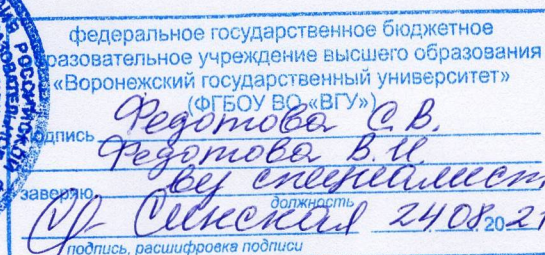 федеральное государственное бюджетное
образовательное учреждение высшего образования
«Воронежский государственный университет»
(ФГБОУ ВО «ВГУ»)
подпись Федотова С.В.
Федотова В.И.
заверяю вед специалист
должность
Синская 24 08 2021
подпись, расшифровка подписи